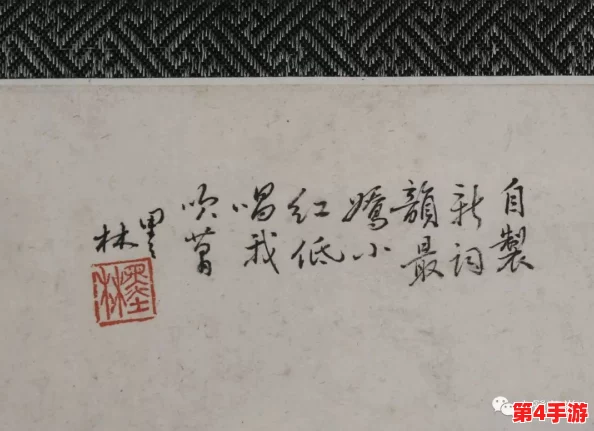 自製
新詞
韻最
嬌小
紅低
唱我
吹簫
墨林
墨林
第4手游